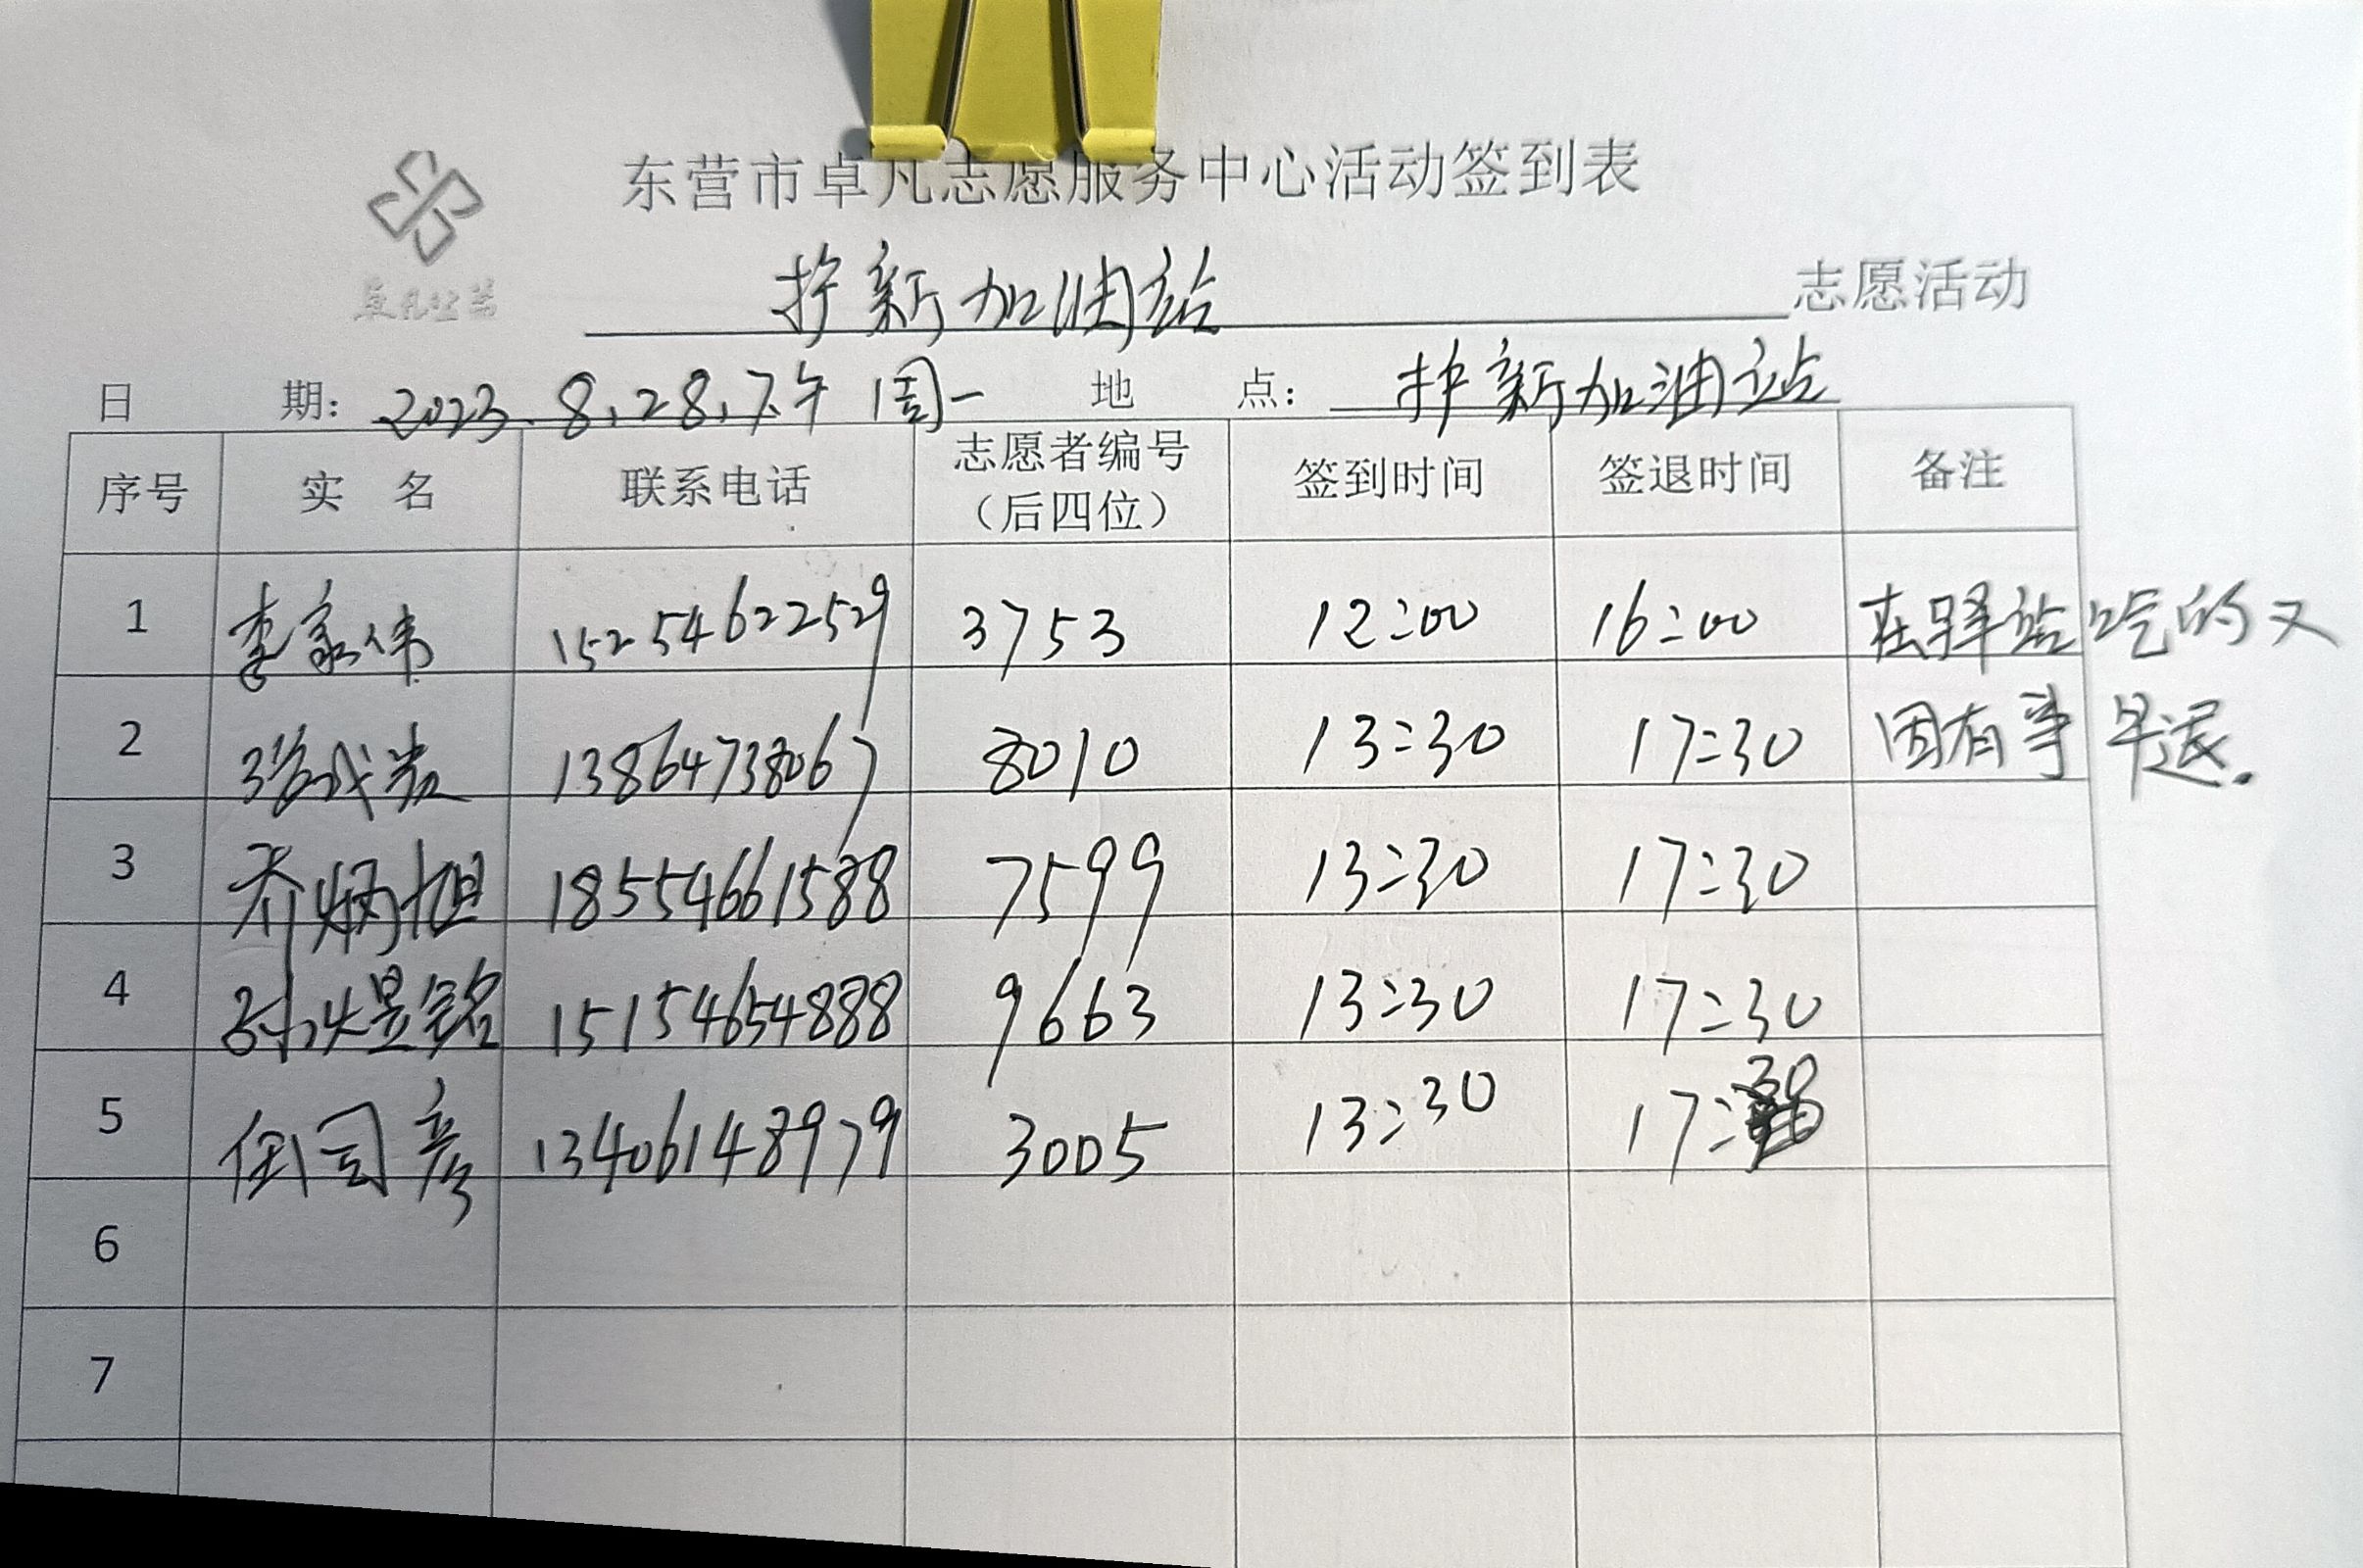 东营市卓凡志愿服务中心活动签到表
护新加油站 志愿活动
日 期: 2023.8.28.下午 周一 地 点: 护新加油站
序号 实 名 联系电话 志愿者编号（后四位） 签到时间 签退时间 备注
1 李家伟 15254622529 3753 12:00 16:00 在驿站吃的又
2 13864738067 8010 13:30 17:30 因有事早退.
3 乔炳旭 18554661588 7599 13:30 17:30
4 孙煜铭 15154654888 9663 13:30 17:30
5 任司彦 13406148979 3005 13:30 17:30
6
7